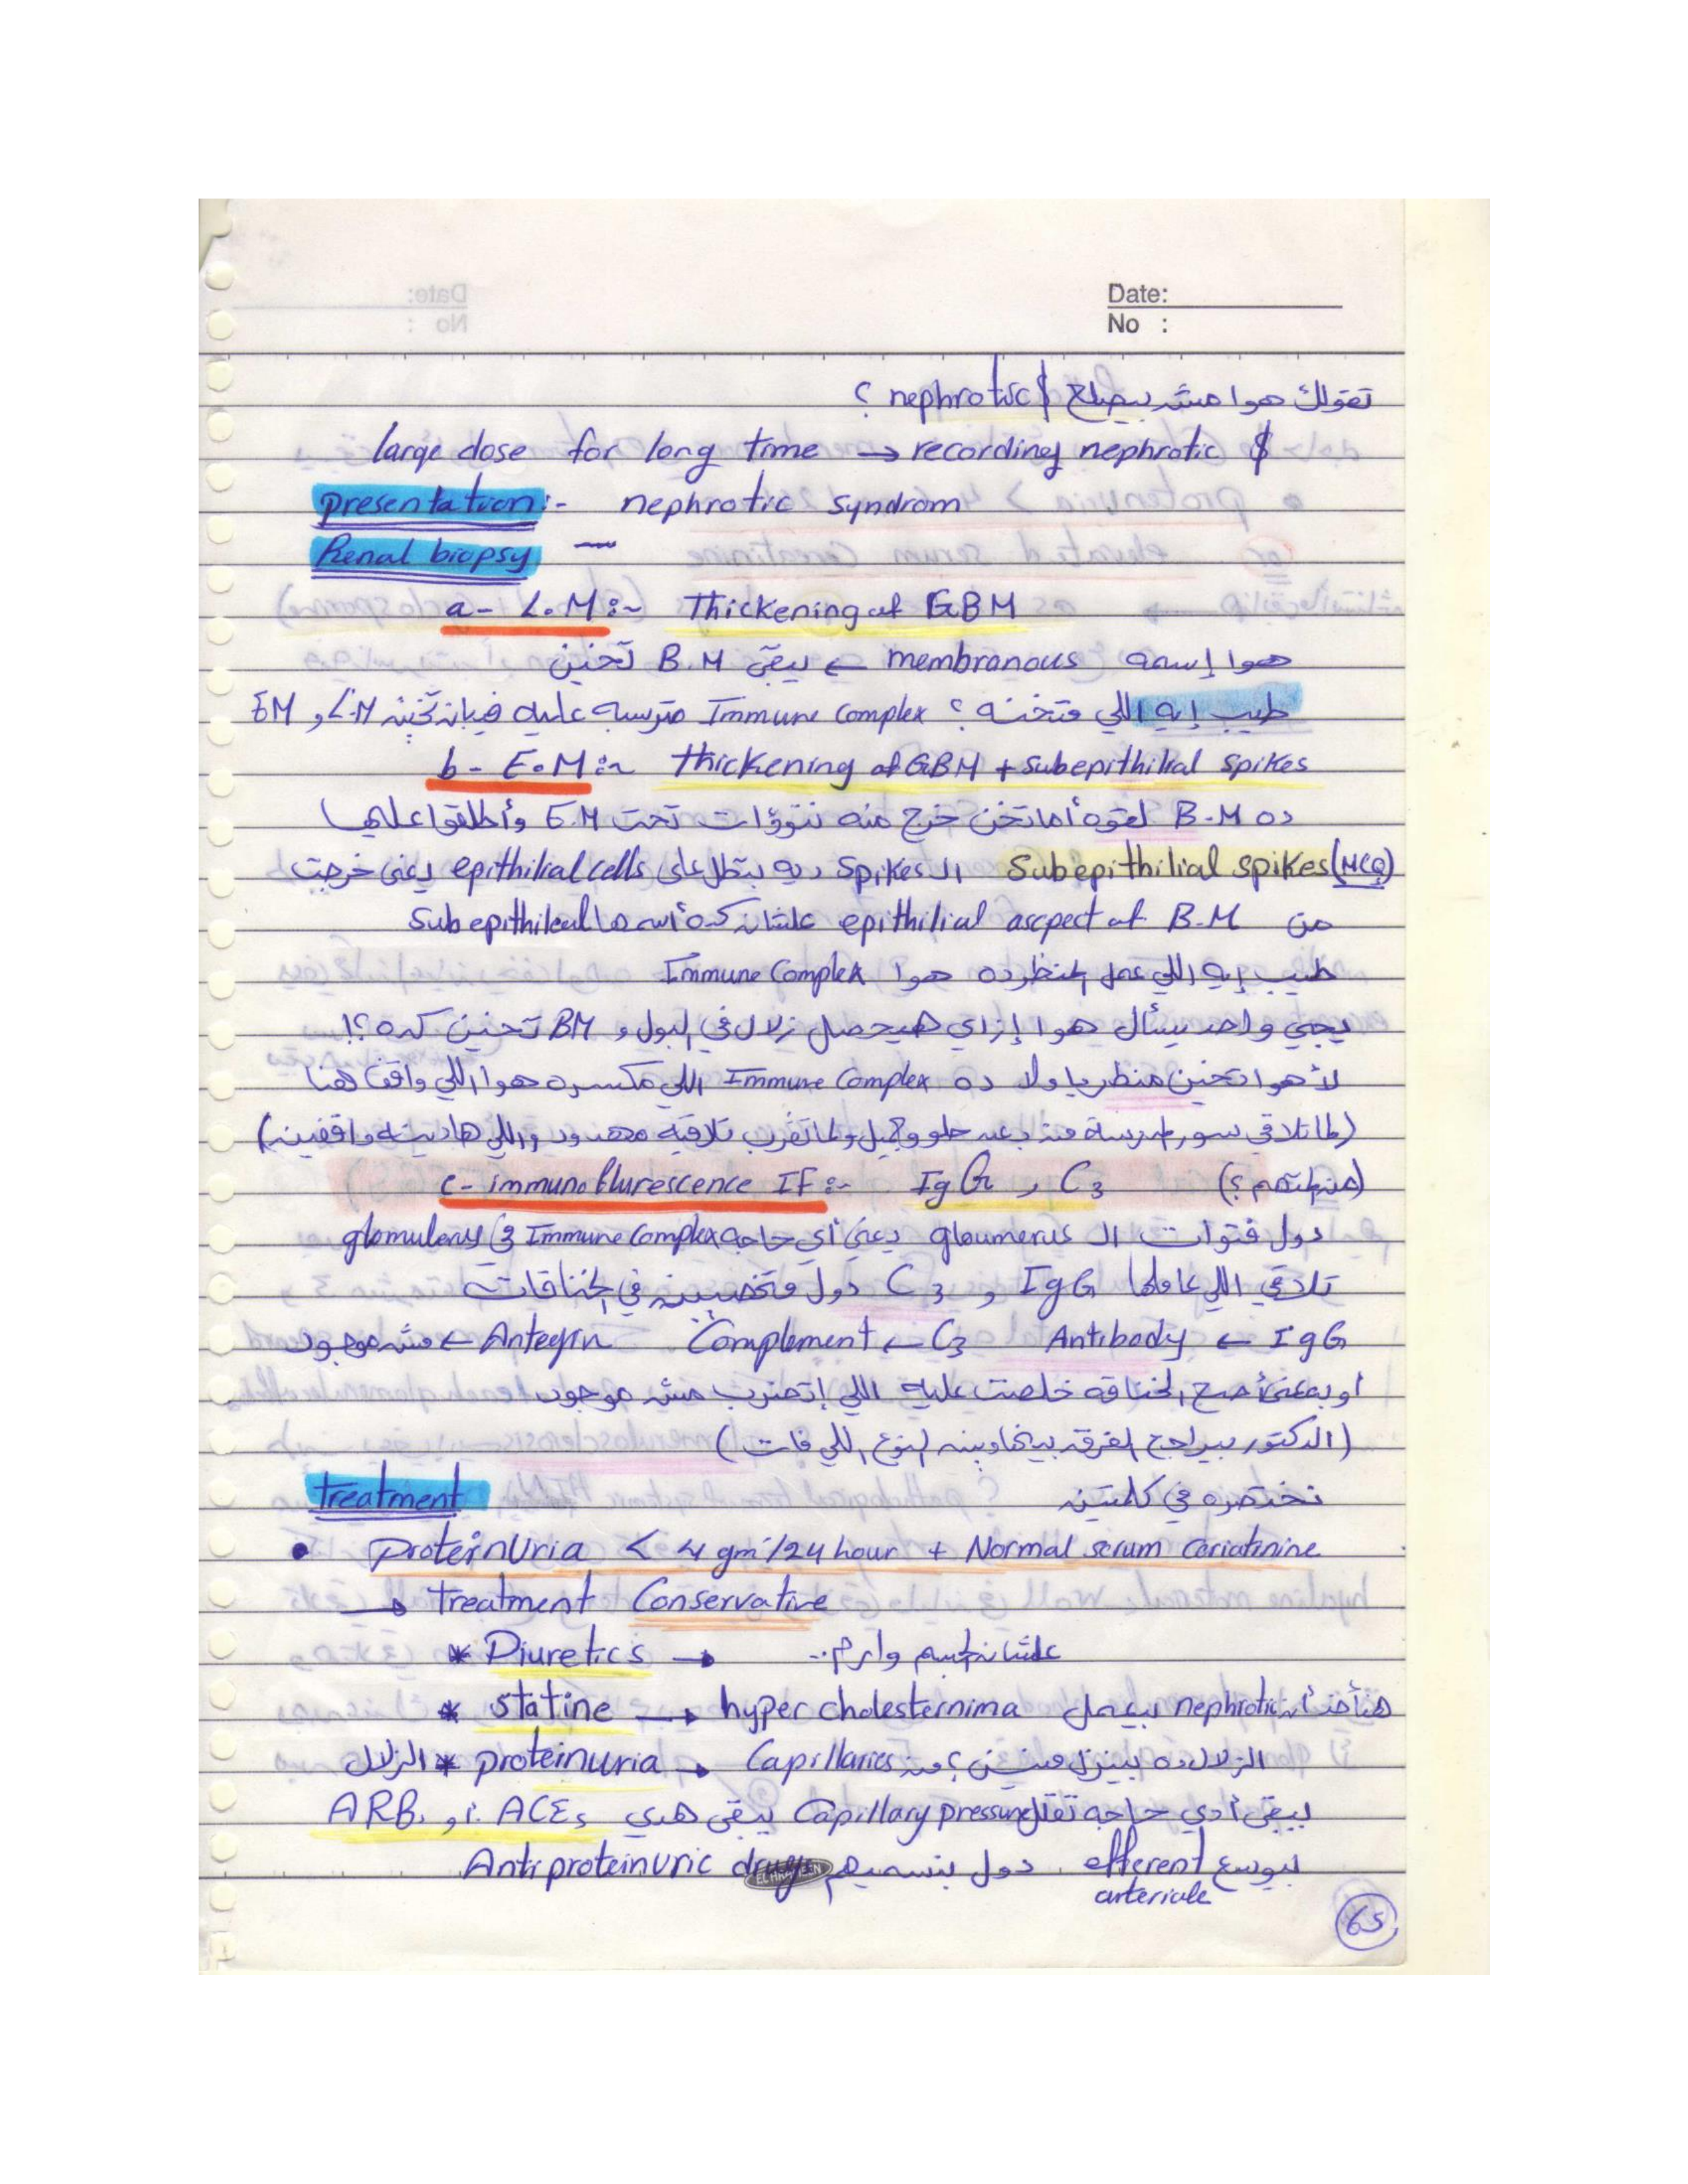 Date:
No :
تقولك هوا مش بيصلح nephrotic $ ؟
large dose for long time → recording nephrotic $
presentation:- nephrotic syndrom
Renal biopsy
a- L.M:- Thickening of GBM
هوا إسمه membranous ← يبقى B.M تخين
طيب إيه اللي متخنه ؟ Immune Complex مترسبه عليه فبان تخين L.M و EM
b- E.M:- thickening of GBM + subepithilial spikes
ده B.M لقوه أما تخن خرج منه نتوؤات تحت E.M وأطلقوا عليها
Subepithilial spikes (MCQ) الـ Spikes ديه بتطل على epithilial cells يعنى خرجت
من epithilial ascpect of B.M علشان كده أسمها Subepithileal
طيب إيه اللي عمل المنظر ده هوا Immune Complex
يجي واحد يسأل هوا إزاي هيحصل زلال في البول و BM تخين كده ؟!
لأ هوا تخين منظر يا ولا ده Immune Complex اللي مكسره هوا اللي واقف هنا
(لما تلاقي سور المدرسة من بعيد حلو وجميل ولما تقرب تلاقيه مهدود واللي هادينه واقفين)
c- immunoflurescence IF:- IgG , C3 (؟)
دول فتوات الـ gloumerus يعنى أي حاجه Immune Complex في glomulerus
تلاقي اللي عاملها IgG و C3 دول متخصصين في الخناقات
IgG ← Antibody C3 ← Complement Antegin ← مش موجود
او بمعنى أصح الخناقه خلصت عليه اللي إتضرب مش موجود
(الدكتور بيراجع الفرق بينها وبين النوع اللي فات)
treatment نختصره في كلمتين
• Proteinuria < 4 gm/24 hour + Normal serum ceriatinine
→ treatment Conservative
* Diuretics → علشان الجسم وارم..
* statine → hyper cholesternima هناخد أن nephrotic بيعمل
الزلال * proteinuria → Capillaries الزلال ده بينزل منين ؟ من
يبقى أدي حاجه تقلل Capillary pressure يبقى هدي ACEs أو ARB
بيوسع efferent arteriole دول بنسميهم Anti proteinuric drugs
65